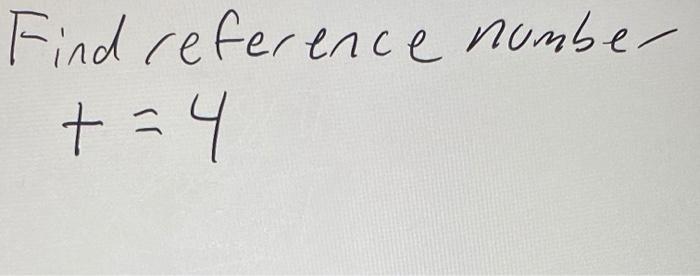 Find reference number
t = 4